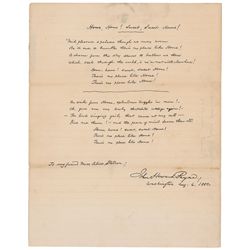 Home, Home! Sweet, Sweet Home!
'Mid pleasures and palaces though we may roam,
Be it ever so humble there's no place like Home!
A charm from the sky seems to hallow us there
which, seek through the world, is ne'er met with elsewhere!
Home, home! sweet, sweet Home!
There's no place like Home!
There's no place like Home!
An exile from Home, splendour dazzles in vain!
Oh, give me my lowly thatched cottage again!
The birds singing gaily that came at my call
Give me them! and the peace of mind dearer than all!
Home, home! sweet, sweet Home!
There's no place like Home!
There's no place like Home!
To my friend Miss
John Howard Payne
Washington